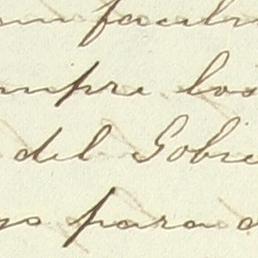 facil
mpre los
del Gobie
para